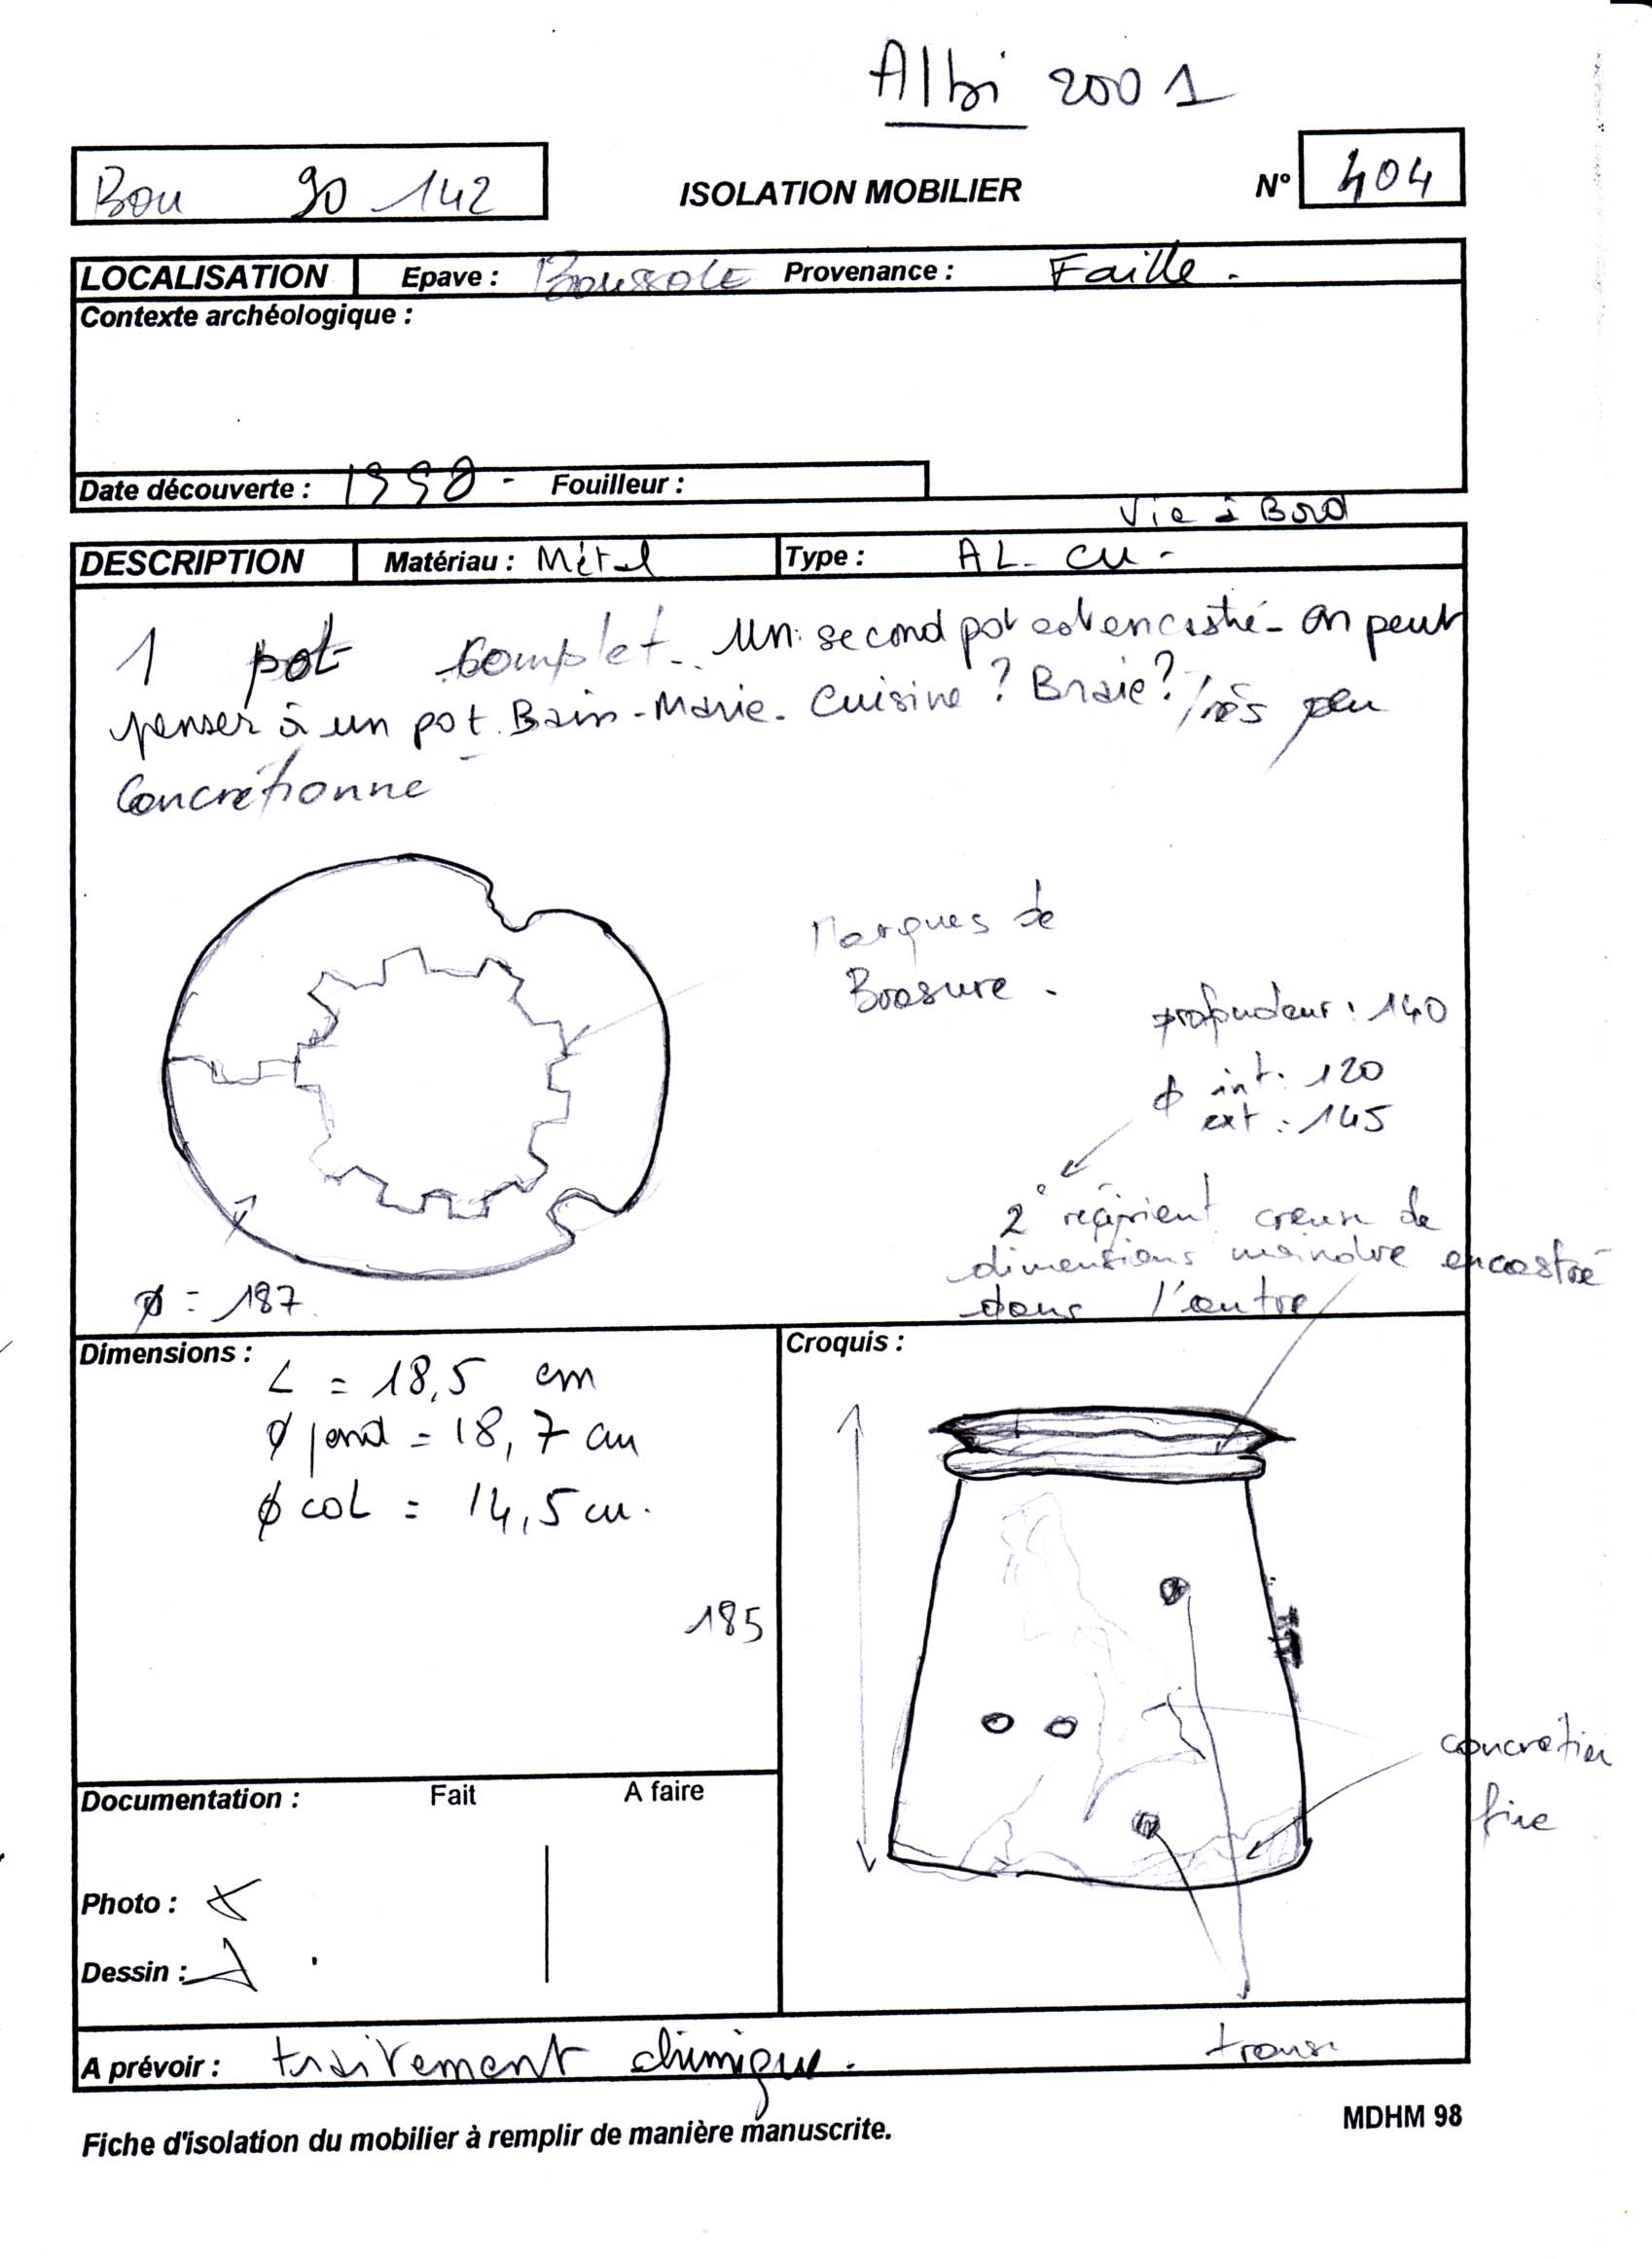 Albi 2001
Bou 90 142
ISOLATION MOBILIER
N° 404
LOCALISATION Epave : Boussole Provenance : Faille.
Contexte archéologique :
Date découverte : 1990 - Fouilleur :
Vie à Bord
DESCRIPTION Matériau : Métal Type : AL. CU -
1 pot complet. Un second pot est encastré - on peut
penser à un pot Bain-Marie. Cuisine ? Braie ? Très peu
Concrétionné
Marques de
Brasure.
profondeur : 140
ϕ int : 120
ext : 145
2° récipient creux de
dimensions moindre encastré
dans l'autre
ϕ = 187
Dimensions :
L = 18,5 cm
ϕ fond = 18,7 cm
ϕ col = 14,5 cm.
185
Croquis :
concrétion
fine
Documentation : Fait A faire
Photo : X
Dessin :
A prévoir : traitement chimique.
MDHM 98
Fiche d'isolation du mobilier à remplir de manière manuscrite.